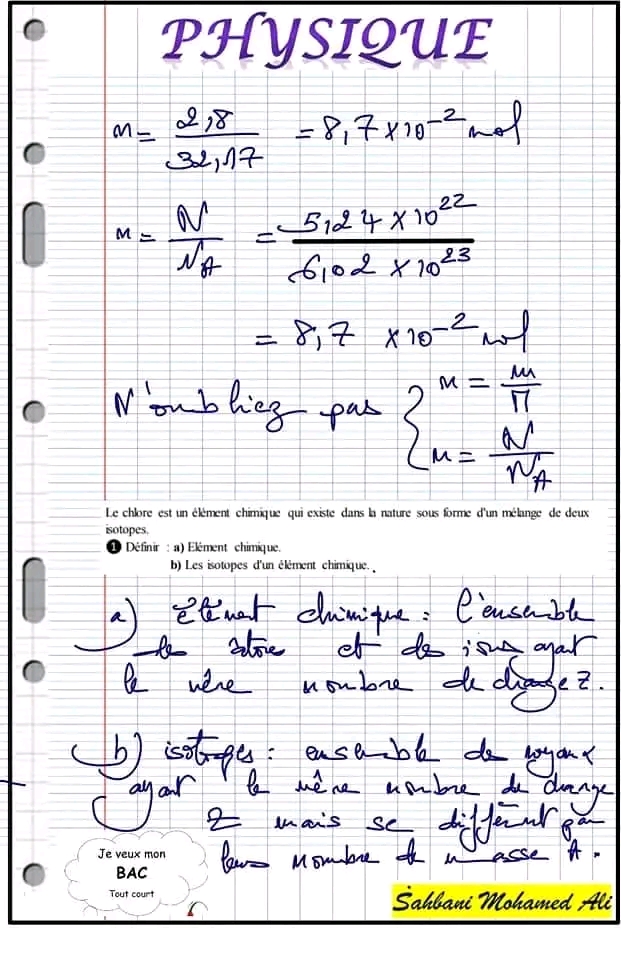 PHYSIQUE
n = 2,8 / 32,17 = 8,7 × 10⁻² mol
n = N / N_A = 5,24 × 10²² / 6,02 × 10²³
= 8,7 × 10⁻² mol
N'oubliez pas { n = m / M
n = N / N_A
Le chlore est un élément chimique qui existe dans la nature sous forme d'un mélange de deux
isotopes.
❶ Définir : a) Elément chimique.
b) Les isotopes d'un élément chimique.
a) Elément chimique : l'ensemble
des atome et des ions ayant
le même nombre de charge Z.
b) isotopes : ensemble de noyaux
ayant le même nombre de charge
Z mais se diffèrent par
leurs nombre de masse A.
Je veux mon
BAC
Tout court
Sahbani Mohamed Ali